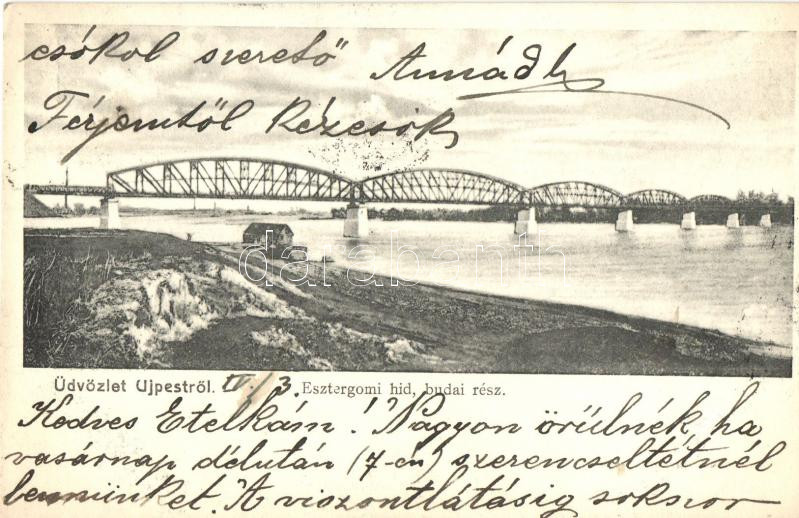 csókol szerető Annád
Férjemtől kézcsók
darabanth
Üdvözlet Ujpestről. IV/3. Esztergomi hid, budai rész.
Kedves Etelkám! Nagyon örülnék, ha
vasárnap délután (7-én) szerencseltetnél
bennünket. A viszontlátásig sokszor